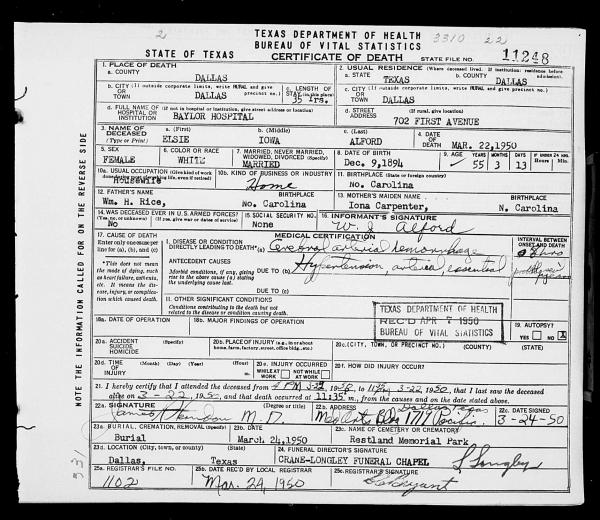 2
TEXAS DEPARTMENT OF HEALTH
3310 22
BUREAU OF VITAL STATISTICS
STATE OF TEXAS
CERTIFICATE OF DEATH
STATE FILE NO. 11248
1. PLACE OF DEATH
a. COUNTY
DALLAS
2. USUAL RESIDENCE (Where deceased lived. If institution: residence before admission).
a. STATE TEXAS b. COUNTY DALLAS
b. CITY (If outside corporate limits, write RURAL and give precinct no.)
OR TOWN DALLAS
c. LENGTH OF STAY (in this place)
35 Yrs.
c. CITY (If outside corporate limits, write RURAL and give precinct no.)
OR TOWN DALLAS
d. FULL NAME OF (If not in hospital or institution, give street address or location)
HOSPITAL OR INSTITUTION BAYLOR HOSPITAL
d. STREET ADDRESS (If rural, give location)
702 FIRST AVENUE
3. NAME OF DECEASED (Type or Print)
a. (First) ELSIE
b. (Middle) IOWA
c. (Last) ALFORD
4. DATE OF DEATH MAR. 22,1950
5. SEX
FEMALE
6. COLOR OR RACE
WHITE
7. MARRIED, NEVER MARRIED, WIDOWED, DIVORCED (Specify)
MARRIED
8. DATE OF BIRTH
Dec. 9,1894
9. AGE YEARS 55 MONTHS 3 DAYS 13 IF UNDER 24 HRS. Hours Min.
10a. USUAL OCCUPATION (Give kind of work done during most of working life, even if retired)
Housewife
10b. KIND OF BUSINESS OR INDUSTRY
Home
11. BIRTHPLACE (State or foreign country)
No. Carolina
12. FATHER'S NAME
Wm. H. Rice,
BIRTHPLACE
No. Carolina
13. MOTHER'S MAIDEN NAME
Iona Carpenter,
BIRTHPLACE
N. Carolina
14. WAS DECEASED EVER IN U.S. ARMED FORCES?
(Yes, no, or unknown) (If yes, give war or dates of service)
No
15. SOCIAL SECURITY NO.
None
16. INFORMANT'S SIGNATURE
W. J. Alford
17. CAUSE OF DEATH
Enter only one cause per line for (a), (b), and (c)
*This does not mean the mode of dying, such as heart failure, asthenia, etc. It means the disease, injury, or complication which caused death.
MEDICAL CERTIFICATION
I. DISEASE OR CONDITION DIRECTLY LEADING TO DEATH* (a) Cerebral arterial hemorrhage
ANTECEDENT CAUSES
Morbid conditions, if any, giving rise to the above cause (a) stating the underlying cause last.
DUE TO (b) Hypertension, arterial, essential
DUE TO (c)
INTERVAL BETWEEN ONSET AND DEATH
hrs
years
II. OTHER SIGNIFICANT CONDITIONS
Conditions contributing to the death but not related to the disease or condition causing death.
18a. DATE OF OPERATION
18b. MAJOR FINDINGS OF OPERATION
TEXAS DEPARTMENT OF HEALTH
REC'D APR 7 1950
BUREAU OF VITAL STATISTICS
19. AUTOPSY?
YES NO X
20a. ACCIDENT SUICIDE HOMICIDE (Specify)
20b. PLACE OF INJURY (e.g., in or about home, farm, factory, street, office bldg., etc.)
20c. (CITY, TOWN, OR PRECINCT NO.) (COUNTY) (STATE)
20d. TIME OF INJURY (Month) (Day) (Year) (Hour) m.
20e. INJURY OCCURRED
WHILE AT WORK NOT WHILE AT WORK
20f. HOW DID INJURY OCCUR?
21. I hereby certify that I attended the deceased from 4 PM 3-22 1950, to 11:35 3-22 1950, that I last saw the deceased
alive on 3-22, 1950, and that death occurred at 11:35 m., from the causes and on the date stated above.
22a. SIGNATURE (Degree or title)
James Herndon M.D.
22b. ADDRESS
Dallas Texas
Med Arts Bldg 1717 Pacific
22c. DATE SIGNED
3-24-50
23a. BURIAL, CREMATION, REMOVAL (Specify)
Burial
23b. DATE
March 24,1950
23c. NAME OF CEMETERY OR CREMATORY
Restland Memorial Park
23d. LOCATION (City, town, or county) (State)
Dallas, Texas
24. FUNERAL DIRECTOR'S SIGNATURE
CRANE-LONGLEY FUNERAL CHAPEL Longley
25a. REGISTRAR'S FILE NO.
1102
25b. DATE REC'D BY LOCAL REGISTRAR
Mar. 24, 1950
25c. REGISTRAR'S SIGNATURE
Bryant
NOTE THE INFORMATION CALLED FOR ON THE REVERSE SIDE